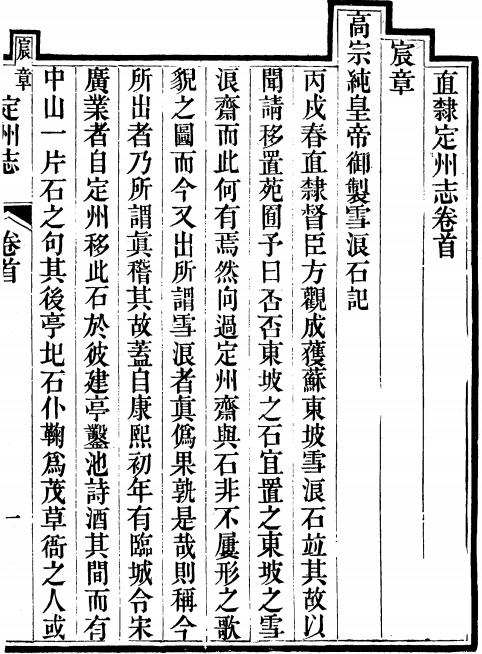 直隸定州志卷首
宸章
高宗純皇帝御製雪浪石記
丙戌春直隸督臣方觀成獲蘇東坡雪浪石竝其故以
聞請移置苑囿予曰否否東坡之石宜置之東坡之雪
浪齋而此何有焉然向過定州齋與石非不屢形之歌
貌之圖而今又出所謂雪浪者眞僞果孰是哉則稱今
所出者乃所謂眞稽其故蓋自康熙初年有臨城令宋
廣業者自定州移此石於彼建亭鑿池詩酒其間而有
中山一片石之句其後亭圮石仆鞠爲茂草衙之人或
宸章
定州志
卷首
一